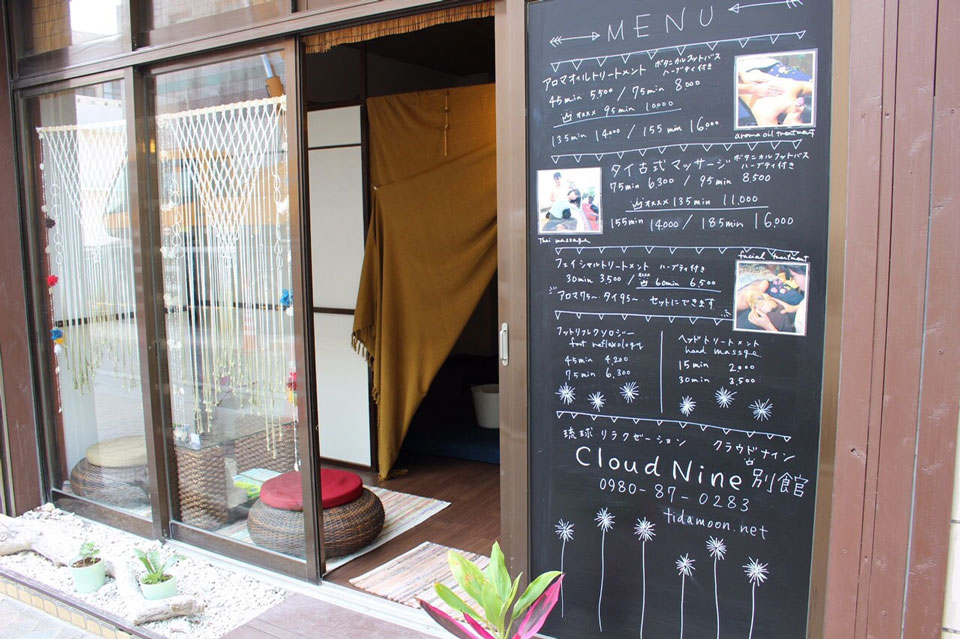 MENU
アロマオイルトリートメント ボタニカルフットバス
ハーブティ付き
45min 5,500 / 75min 8,000
オススメ 95min 10,000
135min 14000 / 155min 16,000
aroma oil treatment
タイ古式マッサージ ボタニカルフットバス
ハーブティ付き
75min 6,300 / 95min 8,500
オススメ 135min 11,000
155min 14000 / 185min 16,000
Thai massage
facial treatment
フェイシャルトリートメント ハーブティ付き
30min 3,500 / 60min 6,500
アロマ75〜 タイ95〜 セットにできます
フットリフレクソロジー
foot reflexology
45min 4,200
75min 6,300
ヘッドトリートメント
head massage
15min 2,000
30min 3,500
琉球リラクゼーション クラウドナイン
Cloud Nine 別館
0980-87-0283
tidamoon.net